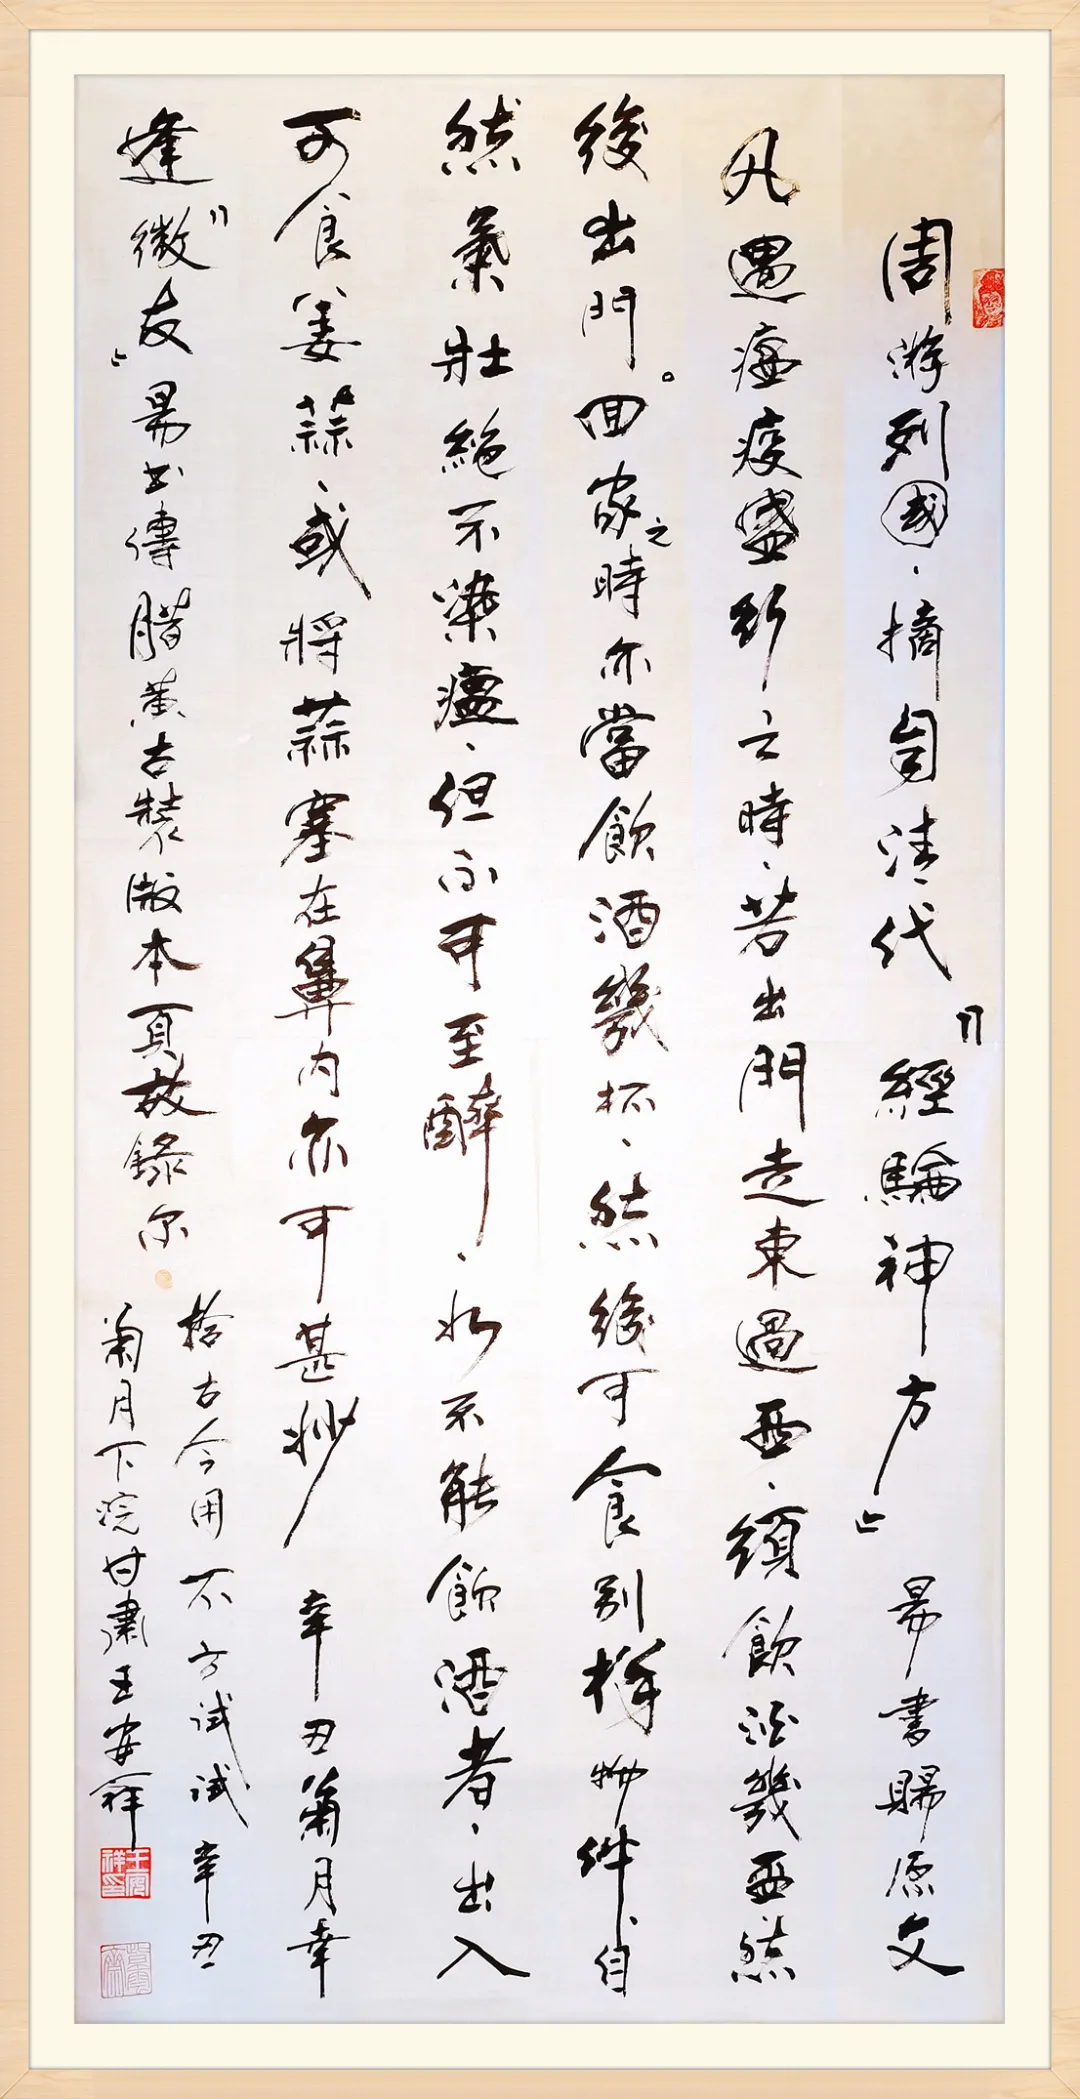 周游列國、摘自清代『經驗神方』易書賜原文
凡遇瘟疫盛行之時、若出門走東過西、須飲酒幾西然
後出門。回家之時亦當飲酒幾杯、然後可食別樣物件、自
然氣壯絕不染瘟、但不可至醉、如不能飲酒者、出入
可食姜蒜、或將蒜塞在鼻內亦可甚妙 辛丑菊月幸
逢『微友』易出傳腊黃古裝散本頁故錄尔
拾古今用不方試試 辛丑
菊月下浣甘肅王安祥
王安祥印